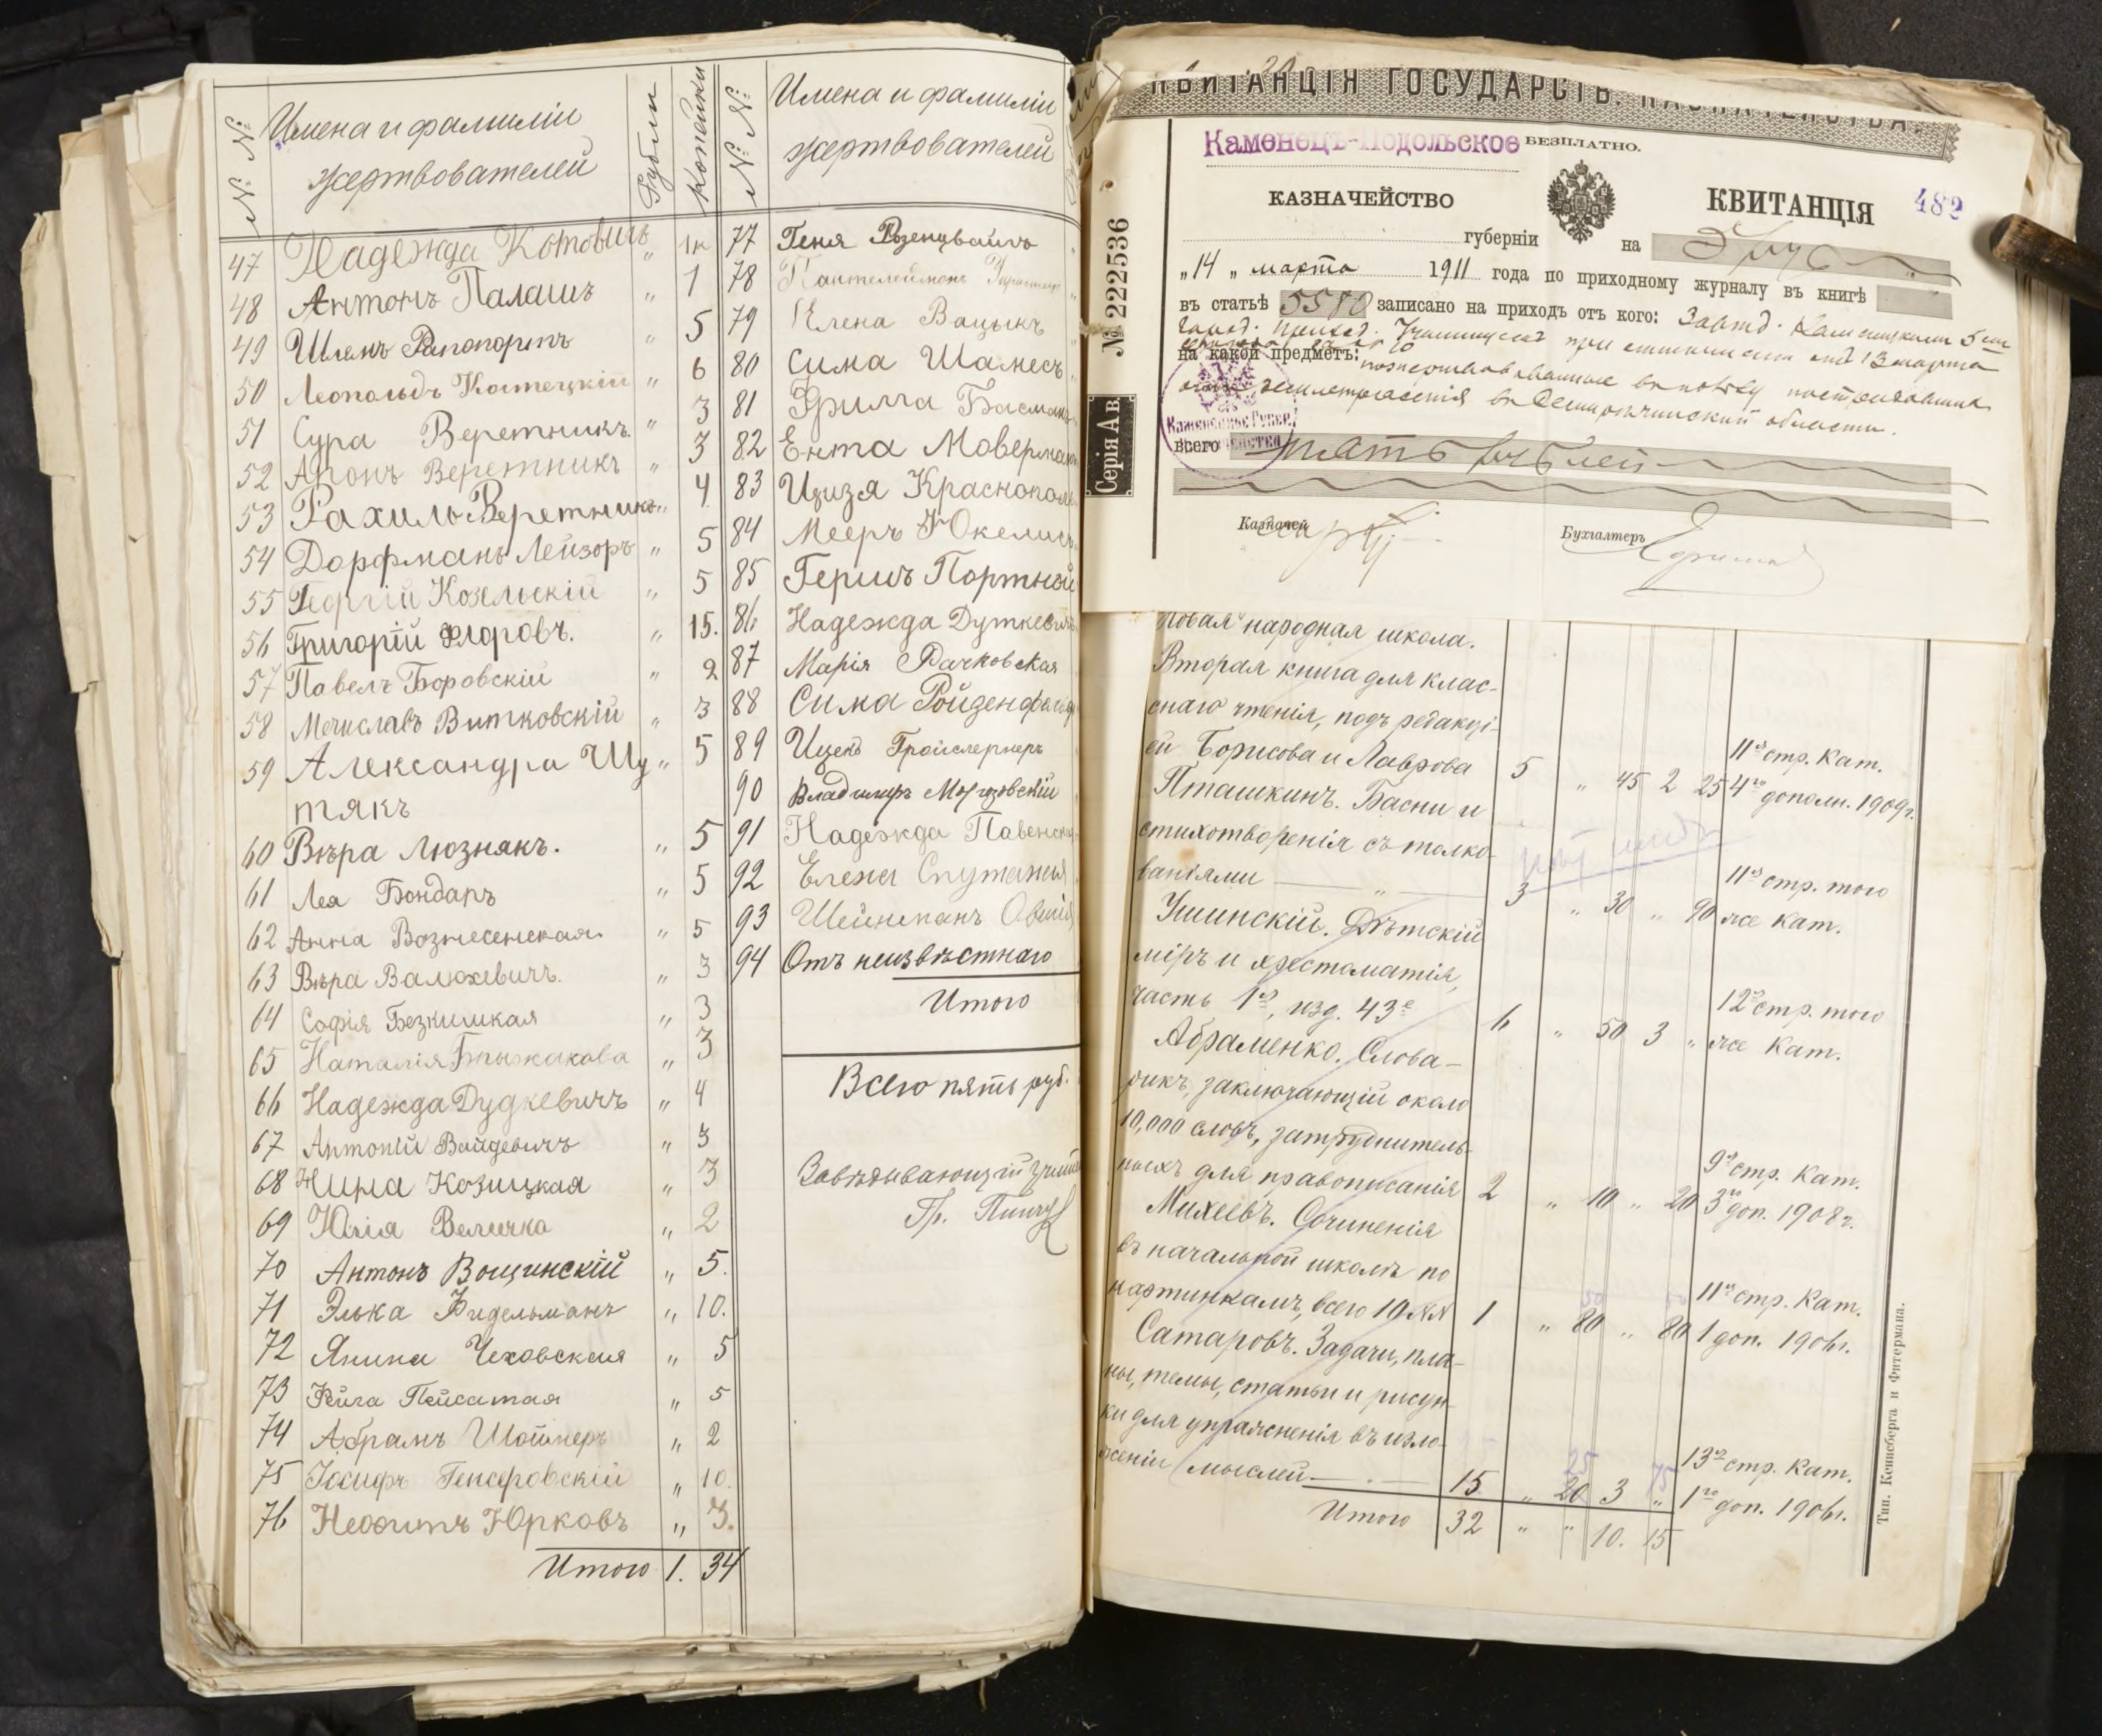 № № Имена и фамиліи жертвователей Рубли Копейки
47 Надежда Котовичъ „ 1к
48 Антонъ Палашъ „ 1
49 Шлемъ Рапопортъ „ 5
50 Леопольдъ „ 6
51 Сура Веретникъ. „ 3
52 Аронъ Веретникъ „ 3
53 Рахиль Веретникъ „ 4
54 Дорфманъ Лейзоръ „ 5
55 Георгій Козельскій „ 5
56 Григорій Флоровъ. „ 15.
57 Павелъ Боровскій „ 2
58 Мечиславъ Витковскій „ 3
59 Александра Шу „ 5
тякъ
60 Вѣра Люзнякъ. „ 5
61 Лея Бондаръ „ 5
62 Анна Вознесенская „ 5
63 Вѣра Валюкевичъ. „ 3
64 Софія Безкишкая „ 3
65 Наталія „ 3
66 Надежда Дудкевичъ „ 4
67 Антоній Вайдевичъ „ 3
68 Нина Козицкая „ 3
69 Юлія Величко „ 2
70 Антонъ Вощинскій „ 5.
71 Элька Бидельманъ „ 10.
72 Янина Чеховская „ 5
73 Фейга Пейсатая „ 5
74 Абрамъ Шойнеръ „ 2
75 Іосифъ „ 10.
76 Неофитъ Юрковъ „ 3.
Итого 1. 34
№ № Имена и фамиліи жертвователей
77 Геня Розенцвайгъ
78 Пантелеймонъ
79 Елена Вацыкъ
80 Сима Шамесъ
81 Фрима Басман
82 Ента Моверман
83 Цизя Краснопол
84 Мееръ Юкелис
85 Гершъ Портной
86 Надежда Дуткевич
87 Марія Рачковская
88 Сима Ройзенфельд
89 Ицекъ Гройслернеръ
90 Владимиръ Моргозовскій
91 Надежда Павенска
92 Елена
93 Шейнманъ
94 Отъ неизвѣстнаго
Итого
Всего пять руб.
Завѣдывающій учили
Гр.
КВИТАНЦІЯ ГОСУДАРСТВ. КАЗНАЧЕЙСТВА.
Каменецъ-Подольское БЕЗПЛАТНО.
КАЗНАЧЕЙСТВО КВИТАНЦІЯ 482
губерніи на
„14 „ марта 1911 года по приходному журналу въ книгѣ
въ статьѣ 5580 записано на приходъ отъ кого: Завѣд. Каменецкимъ 5
на какой предметъ: пожертвованные въ пользу пострадавшихъ
землетрясенія въ Семирѣчинской области.
всего пять рублей
Казначей Бухгалтеръ
№ 222536
Серія А в.
новая народная школа.
Вторая книга для клас-
снаго чтенія, подъ редакці-
ей Борисова и Лаврова 5 „ 45 2 25 11я стр. Кат. 4го дополн. 1909г.
Пташкинъ. Басни и
стихотворенія съ толко-
ваніями — „ — 3 „ 30 „ 90 11я стр. того же Кат.
Ушинскій. Дѣтскій
міръ и хрестоматія,
часть 1я, изд. 43е 6 „ 50 3 „ 12я стр. того же Кат.
Абраменко. Слова-
рикъ, заключающій около
10,000 словъ, затруднитель-
ныхъ для правописанія 2 „ 10 „ 20 9я стр. Кат. 3го доп. 1908г.
Михеевъ. Сочиненія
въ начальной школѣ по
картинкамъ, всего 10 №№ 1 „ 80 „ 80 11я стр. Кат. 1 доп. 1906г.
Сатаровъ. Задачи, пла-
ны, темы, статьи и рисун-
ки для упражненія въ изло-
женіи мыслей — 15 „ 20 3 „ 13я стр. Кат. 1го доп. 1906г.
25 75
Итого 32 „ „ 10. 15
Тип. Кенисберга и Фитермана.